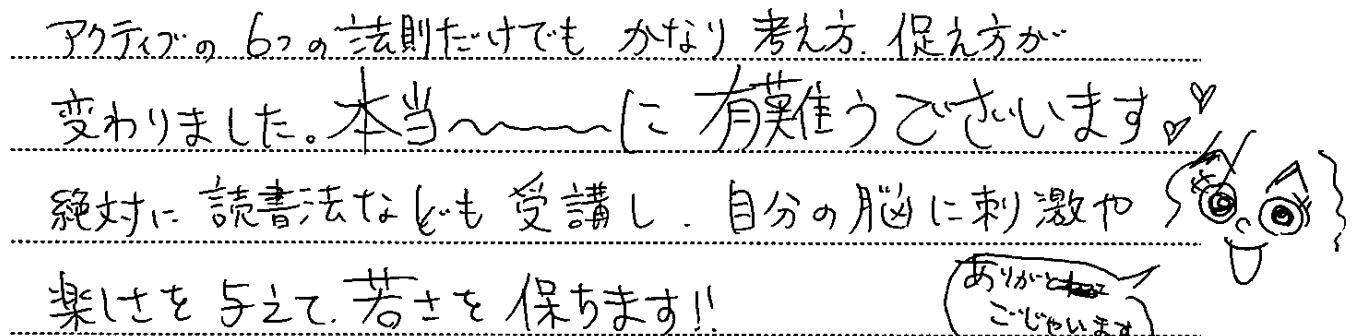 アクティブの 6つの法則だけでも かなり 考え方、促え方が
変わりました。本当〜〜〜に 有難うございます♡♡
絶対に 読書法なども 受講し、自分の脳に刺激や
楽しさを 与えて、若さを 保ちます!!
ありがと
ごじゃいます